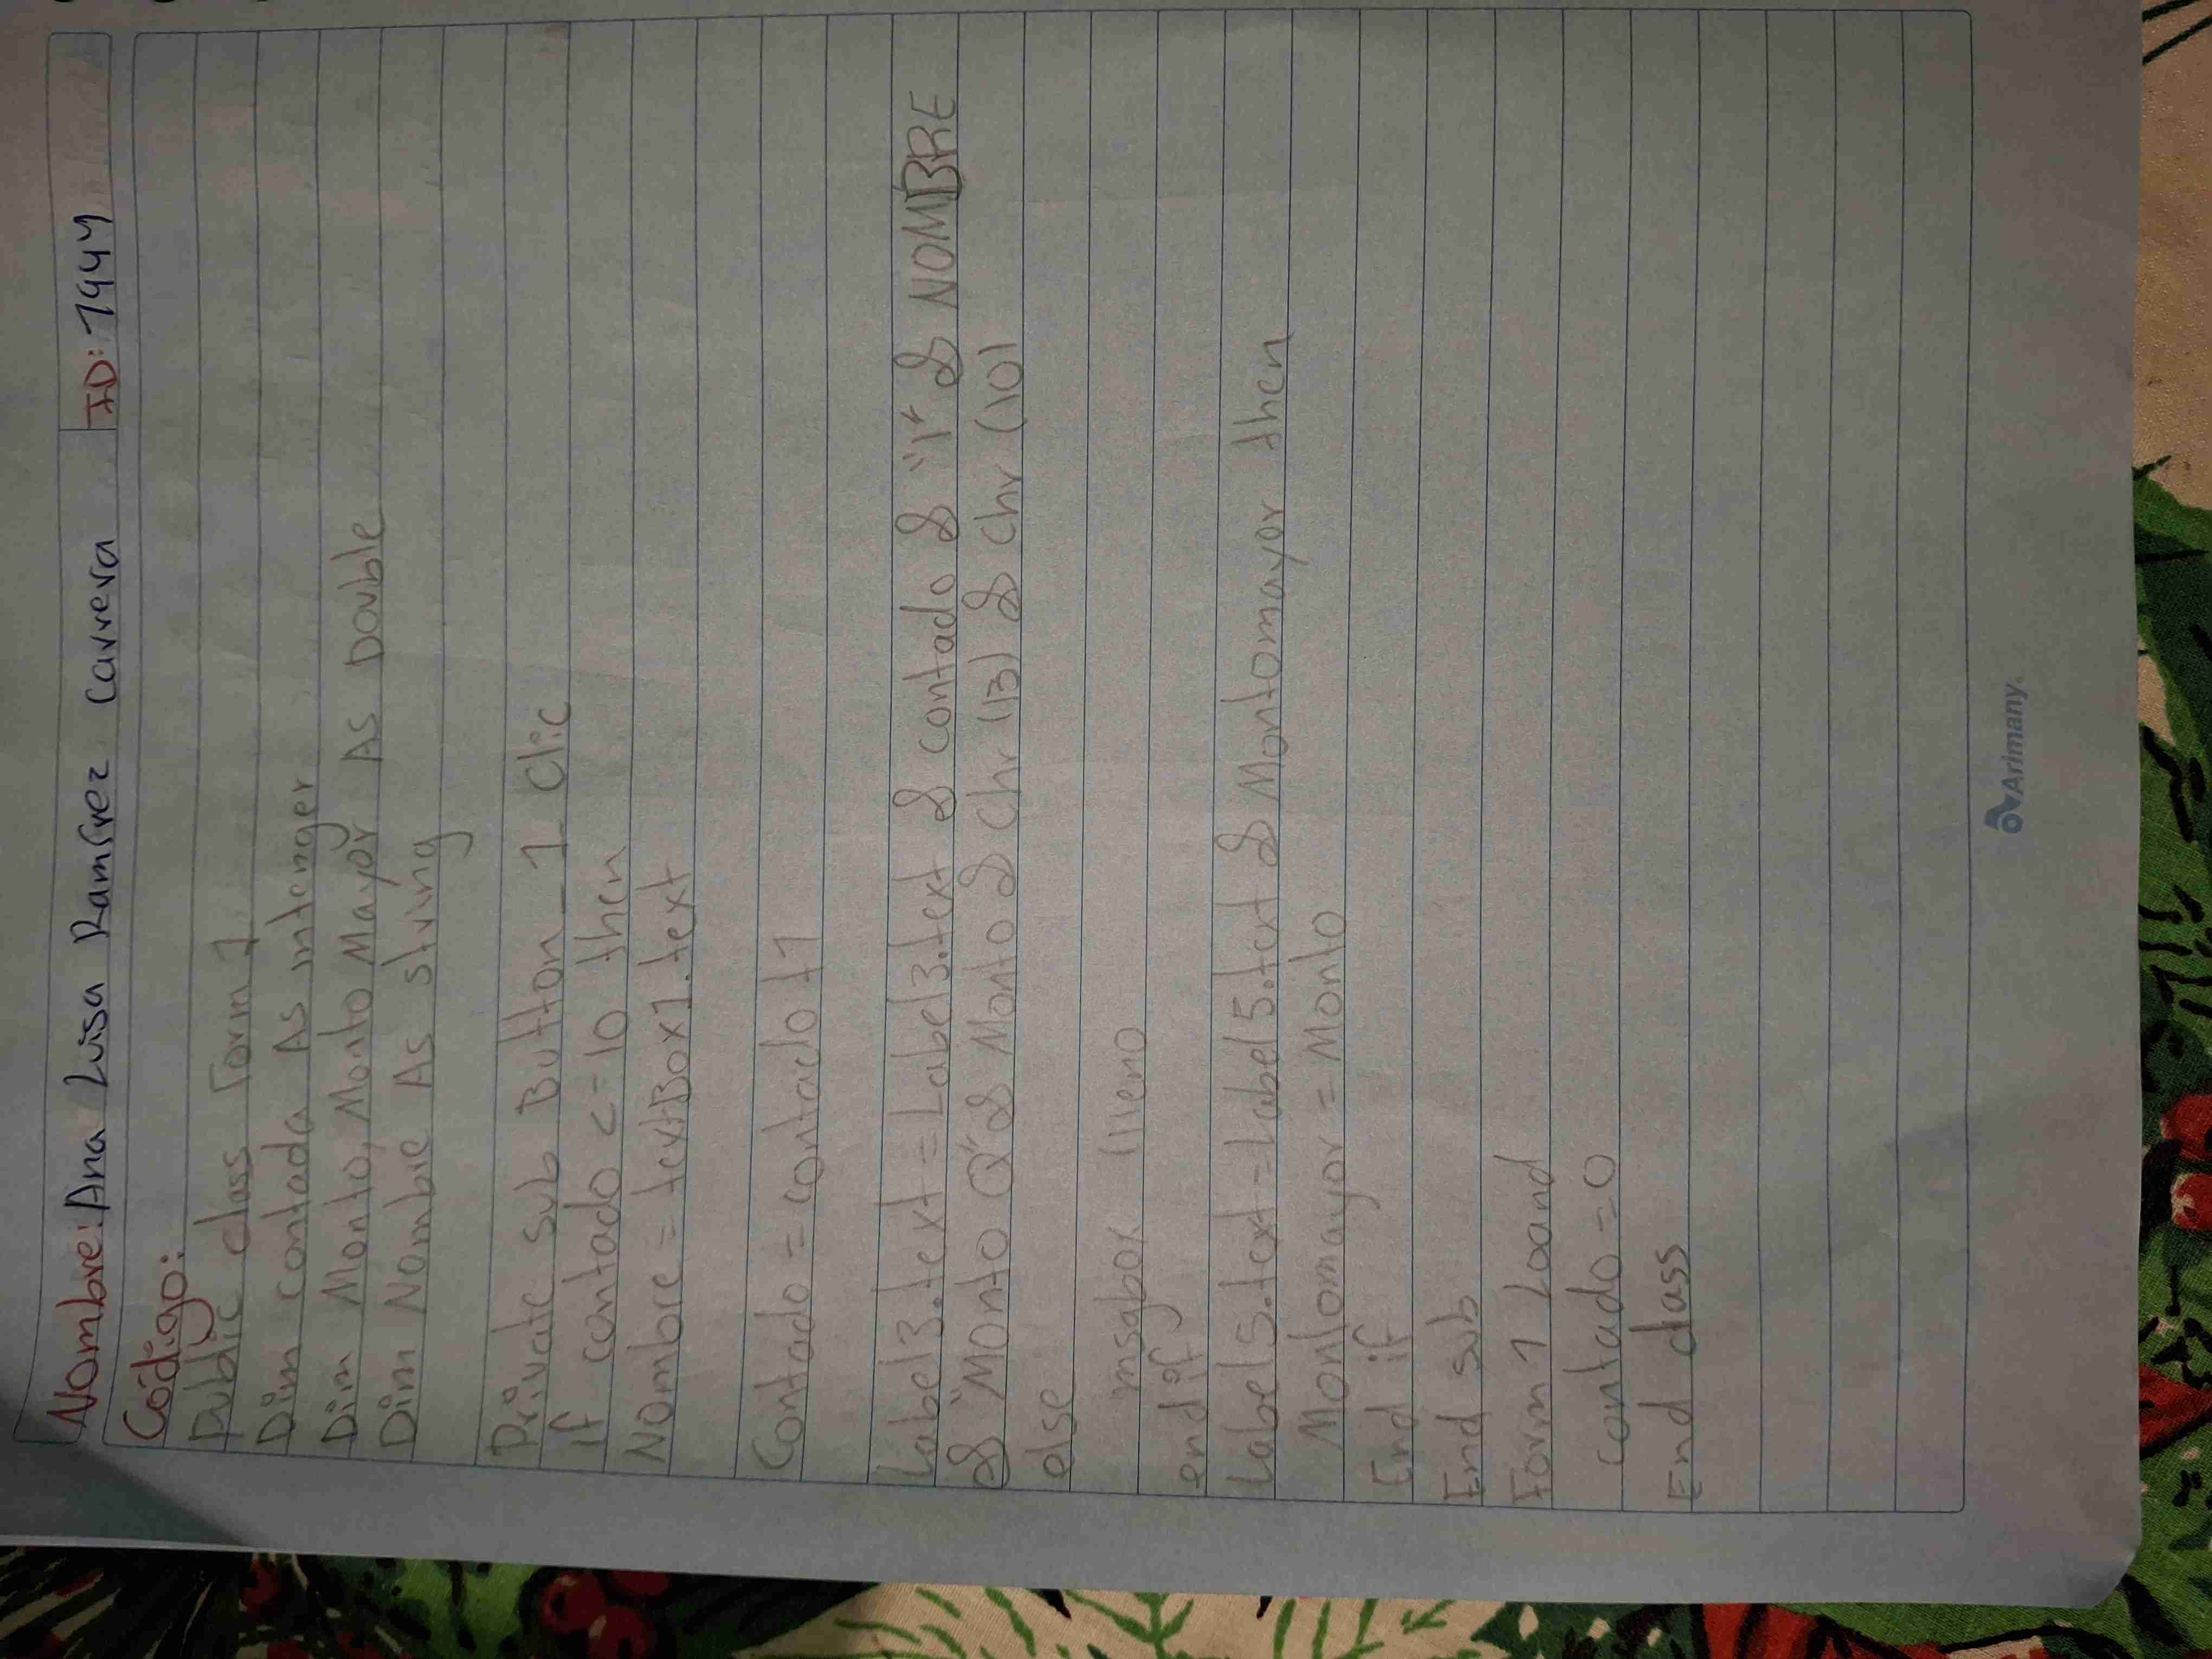 Nombre: Ana Luisa Ramírez Carrera ID: 7944
Código:
Public class Form 1
Dim contada As intenger
Dim Monto, Monto Mayor As Double
Dim Nombre As string
Private sub Button_1_Clic
if contado <=10 then
Nombre = textBox1.text
Contado = contado +1
Label3.text = Label3.text & contado & "1" & NOMBRE
& "Monto Q" & Monto & Chr (13) & Chr (10)
else
msgbox lleno
end if
Label5.text = Label5.text & Montomayor then
Montomayor = Monto
End if
End sub
Form 1 Loand
contado = 0
End class
Arimany